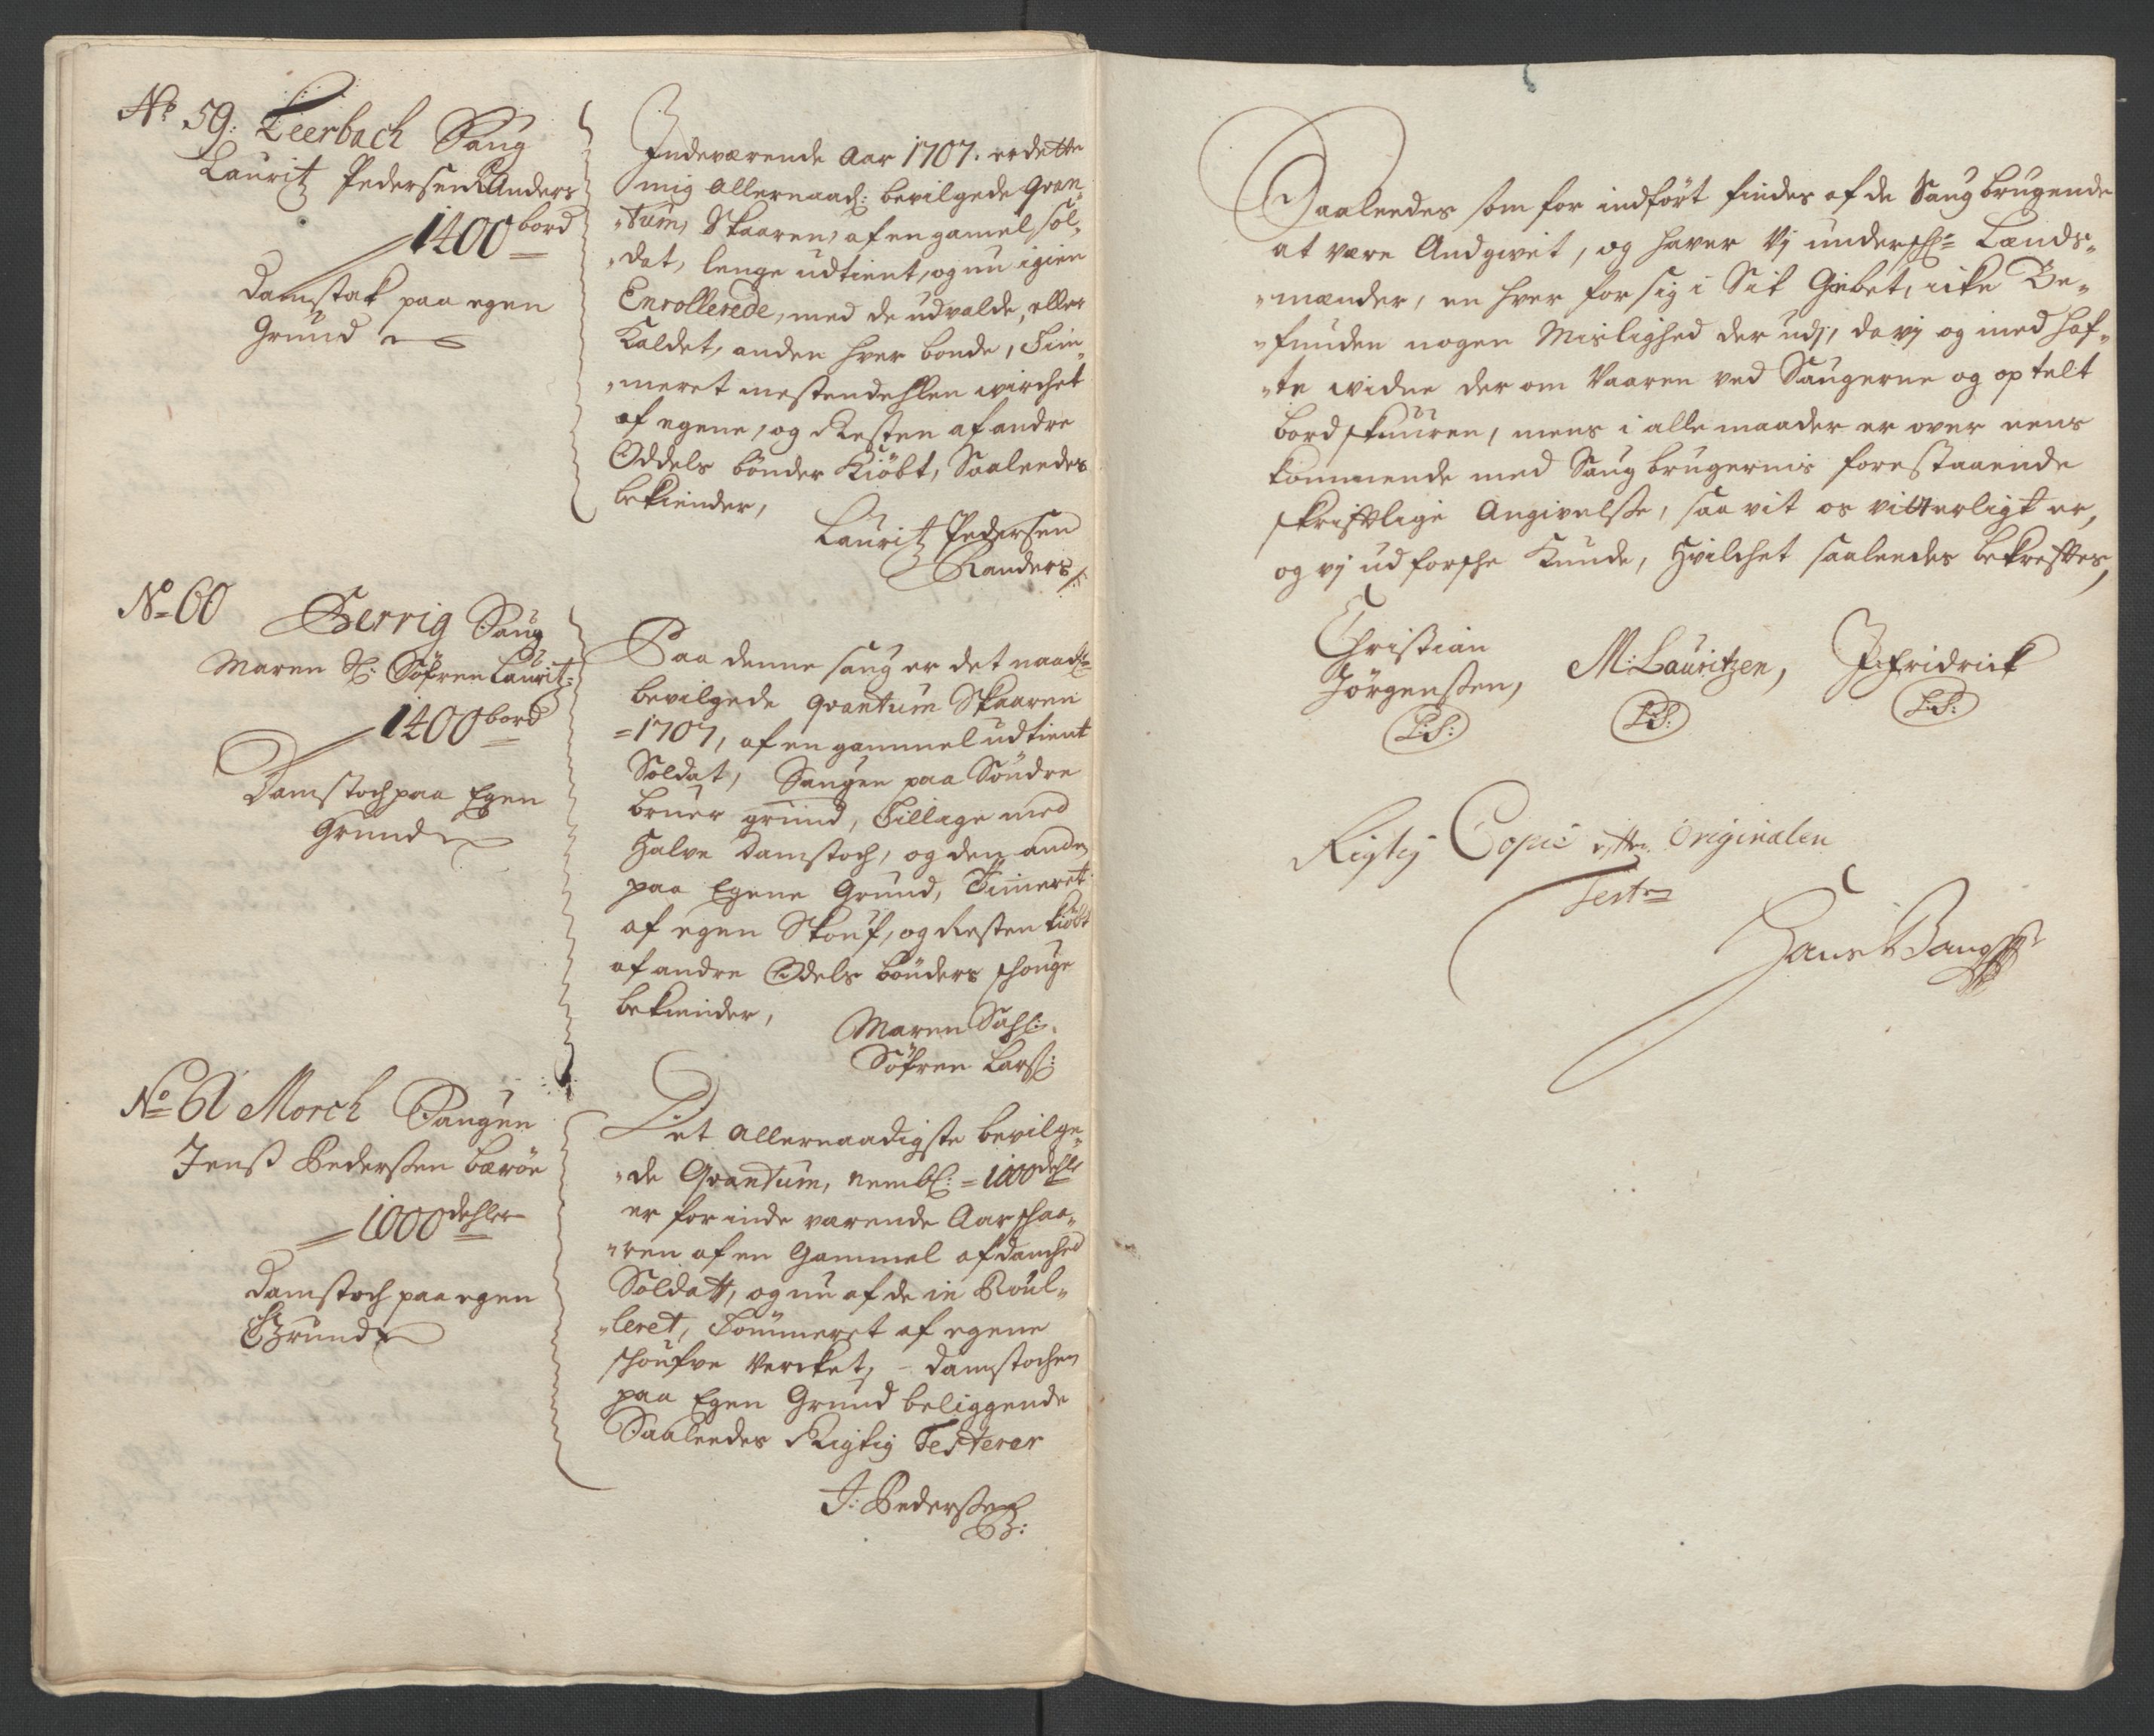 No 59. Leerbach Saug
Lauritz Pedersen Randers
1400 bord
Damstok paa egen
Grund
Indeværende Aar 1707. er dette
mig Allernaad: bevilgede Qvan-
-tum, Skaaren, af en gamel sol-
-dat, lenge udtient, og nu igien
Enrollerede, med de udvalde, eller
Kaldet, anden hver bonde, Tim-
-meret mestendehlen wirchet
af egene, og Resten af andre
Oddels bönder Kiöbt, Saaleedes
bekiender,
Lauritz Pedersen
Randers
No 60 Gerrig Saug
Maren Sl: Söfren Laurit:
1400 bord
Damstoch paa Egen
Grund
Paa denne saug er det naadl:
bevilgede Qvantum Skaaren
=1707, af en gammel udtient
Soldat, Saugen paa Söndre
bruer grund, Tillige med
Halve Damstoch, og den anden
paa Egene Grund, Timeret
af egen Skouf, og Resten kiöbt
af andre Odels bönders schouge
bekiender,
Maren Sahl:
Söfren Larss:
No 61 Morch Saugen
Jenss Pederssen Baröe
1000 dehler
Damstoch paa egen
Grund
Det allernaadigste bevilge-
-de Qvantum, nembl: =1000 dehle
er for inde værende Aar schaa-
-ren af en Gammel afdanched
Soldatt, og nu af de in Roul-
-leret, Tömmeret af egene
schoufve Vercket, - Damstochen
paa Egen Grund beliggende
Saaleedes Rigtig Testerer
J: Pederssen
B:
Saaleedes som for indfört findes af de Saug brugende
at være Andgivet, og haver Vj underschl: Lænds-
-mænder, en hver for sig i Sit Giebet, icke Be-
-funden nogen Mislighed der udj, da vj og med haf-
-te widne der om Vaaren ved Saugerne og optelt
bord skuuren, mens i alle maader er over eens
kommende med Saug brugernis forestaaende
skriftlige Angivelsse, saa vit os vitterligt er,
og vj ud forsche Kunde, Hvilchet saaleedes bekreftes,
Christian
Jörgenssen,
M: Lauritzen,
J: Fridrich
L:S:
L:S:
L:S:
Rigtig Copie efter Originalen
Test: